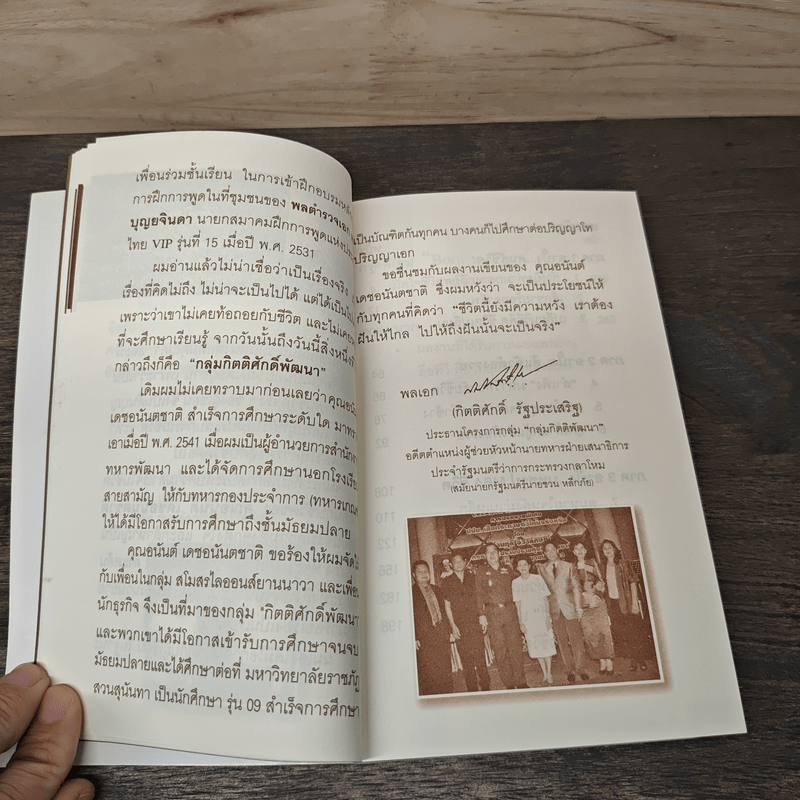 เพื่อนร่วมชั้นเรียน ในการเข้าฝึกอบรมหลัก
การฝึกการพูดในที่ชุมชนของ พลตำรวจเอก
บุญยจินดา นายกสมาคมฝึกการพูดแห่งประ
ไทย VIP รุ่นที่ 15 เมื่อปี พ.ศ. 2531
ผมอ่านแล้วไม่น่าเชื่อว่าเป็นเรื่องจริง
เรื่องที่คิดไม่ถึง ไม่น่าจะเป็นไปได้ แต่ได้เป็นไป
เพราะว่าเขาไม่เคยท้อถอยกับชีวิต และไม่เคย
ที่จะศึกษาเรียนรู้ จากวันนั้นถึงวันนี้สิ่งหนึ่งที่
กล่าวถึงก็คือ "กลุ่มกิตติศักดิ์พัฒนา"
เดิมผมไม่เคยทราบมาก่อนเลยว่าคุณอนั
เดชอนันตชาติ สำเร็จการศึกษาระดับใด มาทรา
เอาเมื่อปี พ.ศ. 2541 เมื่อผมเป็นผู้อำนวยการสำนักงา
ทหารพัฒนา และได้จัดการศึกษานอกโรงเรีย
สายสามัญ ให้กับทหารกองประจำการ (ทหารเกณฑ์
ให้ได้มีโอกาสรับการศึกษาถึงชั้นมัธยมปลาย
คุณอนันต์ เดชอนันตชาติ ขอร้องให้ผมจัดให้
กับเพื่อนในกลุ่ม สโมสรไลออนส์ยานนาวา และเพื่อ
นักธุรกิจ จึงเป็นที่มาของกลุ่ม "กิตติศักดิ์พัฒนา
และพวกเขาได้มีโอกาสเข้ารับการศึกษาจนจบ
มัธยมปลายและได้ศึกษาต่อที่ มหาวิทยาลัยราชภัฏ
สวนสุนันทา เป็นนักศึกษา รุ่น 09 สำเร็จการศึกษา
เป็นบัณฑิตกันทุกคน บางคนก็ไปศึกษาต่อปริญญาโท
ปริญญาเอก
ขอชื่นชมกับผลงานเขียนของ คุณอนันต์
เดชอนันตชาติ ซึ่งผมหวังว่า จะเป็นประโยชน์ให้
กับทุกคนที่คิดว่า "ชีวิตนี้ยังมีความหวัง เราต้อง
ฝันให้ไกล ไปให้ถึงฝันนั้นจะเป็นจริง"
พลเอก
(กิตติศักดิ์ รัฐประเสริฐ)
ประธานโครงการกลุ่ม "กลุ่มกิตติพัฒนา"
อดีตตำแหน่งผู้ช่วยหัวหน้านายทหารฝ่ายเสนาธิการ
ประจำรัฐมนตรีว่าการกระทรวงกลาโหม
(สมัยนายกรัฐมนตรีนายชวน หลีกภัย)